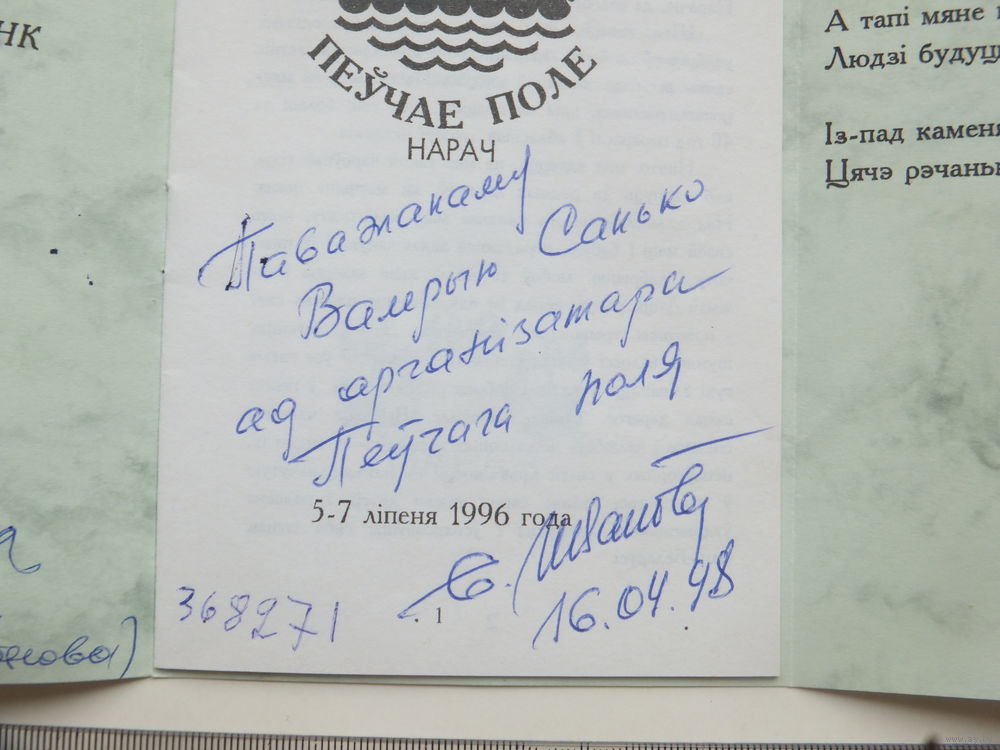 НК
ПЕЎЧАЕ ПОЛЕ
НАРАЧ
Паважанаму
Валерыю Санько
ад арганізатара
Пеўчага поля
5-7 ліпеня 1996 года
16.04.98
368271
1
А тапі мяне
Людзі будуць
Із-пад каменя
Цячэ рэчань